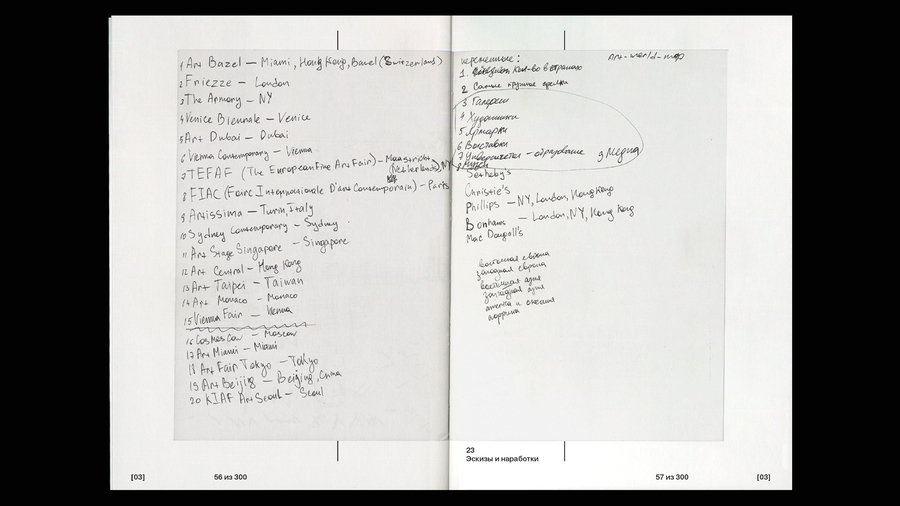 1 Art Bazel – Miami, Hong Kong, Basel (Swizzerland)
2 Friezze – London
3 The Armory – NY
4 Venice Biennale – Venice
5 Art Dubai – Dubai
6 Vienna Contemporary – Vienna
7 TEFAF (The European Fine Art Fair) – Maastricht (Netherlands), NY
8 FIAC (Foire Internationale D'art Contemporain) – Paris
9 Artissima – Turin, Italy
10 Sydney Contemporary – Sydney
11 Art Stage Singapore – Singapore
12 Art Central – Hong Kong
13 Art Taipei – Taiwan
14 Art Monaco – Monaco
15 Vienna Fair – Vienna
16 Cosmoscow – Moscow
17 Art Miami – Miami
18 Art Fair Tokyo – Tokyo
19 Art Beijing – Beijing, China
20 KIAF Art Seoul – Seoul
[03]
56 из 300
переменные:
Art-world-map
1. кол-во в страны
2 Самые крупные
3 Галереи
4 Художники
5 Ярмарки
6 Выставки
7 Университеты – образование
9 Медиа
8 Музеи
Sotheby's
Christie's
Phillips – NY, London, Hong Kong
Bonhams – London, NY, Hong Kong
Mac Dougall's
восточная европа
западная европа
восточная азия
западная азия
африка
23
Эскизы и наработки
57 из 300
[03]